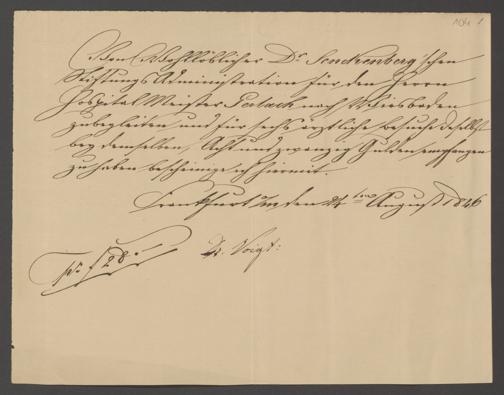 104 1
Von Wohllöblicher Dr. Senckenberg'schen
Stiftungs Administration für den Herrn
Hospital Meister Perlach nach Wiesbaden
zu begleiten und für sechs ärztliche Besuche daselbst
bey demselben, Acht und zwanzig Gulden empfangen
zu haben bescheinige ich hiermit.
Frankfurt den 24ten August 1846
pr. f 28.
Dr. Voigt: